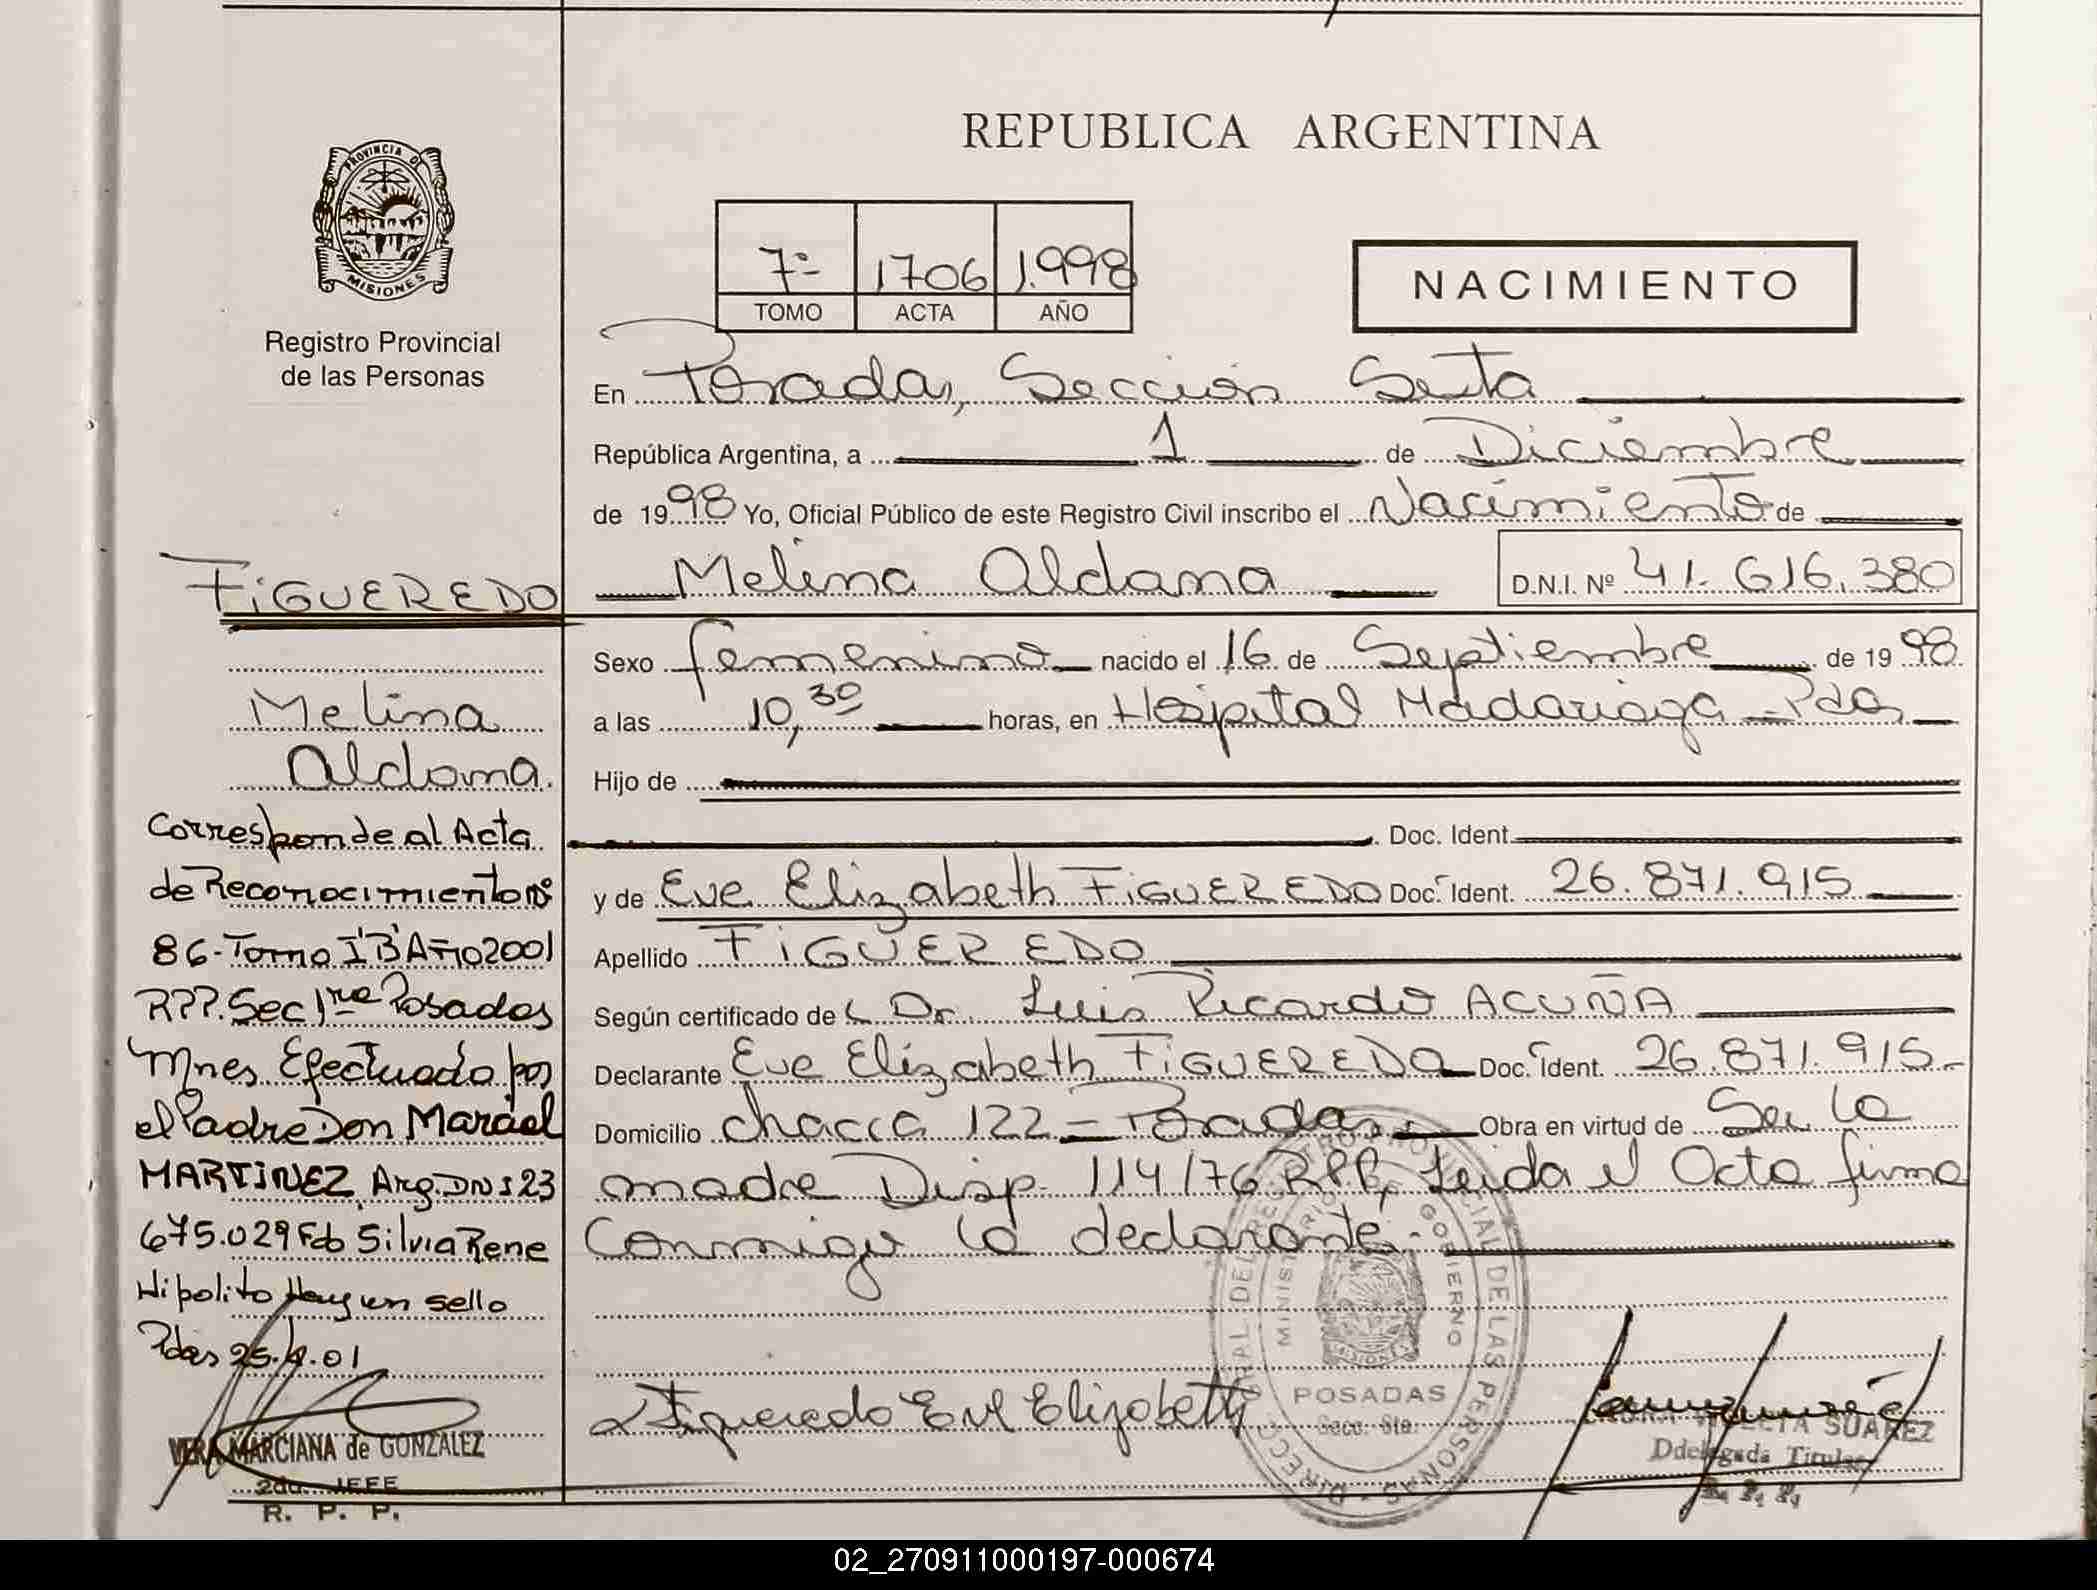 REPUBLICA ARGENTINA
PROVINCIA D
MISIONES
Registro Provincial
de las Personas
7º 1706 1.998
TOMO ACTA AÑO
NACIMIENTO
En Posadas, Sección Sexta
República Argentina, a 1 de Diciembre
de 1998 Yo, Oficial Público de este Registro Civil inscribo el Nacimiento de
Melina Aldana D.N.I. Nº 41.616.380
Sexo femenino nacido el 16 de Septiembre de 1998
a las 10,30 horas, en Hospital Madariaga - Pdas
Hijo de
Doc. Ident.
y de Eve Elizabeth FIGUEREDO Doc. Ident. 26.871.915
Apellido FIGUEREDO
Según certificado de Dr. Luis Ricardo ACUÑA
Declarante Eve Elizabeth FIGUEREDO Doc. Ident. 26.871.915-
Domicilio chacra 122 - Posadas Obra en virtud de Ser la
madre Disp. 114/76 RPP, Leida el Acta firma
Conmigo la declarante.-
Figueredo Eve Elizabeth
POSADAS
Secc. 6ta.
SUAREZ
Ddelegada Titular
FIGUEREDO
Melina
Aldana.
Corresponde al Acta
de Reconocimiento Nº
86-Tomo I"B"Año2001
RPP.Sec 1ra Posadas
Mnes Efectuado por
el Padre Don Marcial
MARTINEZ, Arg.DNI 23
675.029 Fdo Silvia Rene
Hipolito Hay un sello
Pdas 25.4.01
VERA MARCIANA de GONZALEZ
2do. JEFE
R. P. P.
02_270911000197-000674